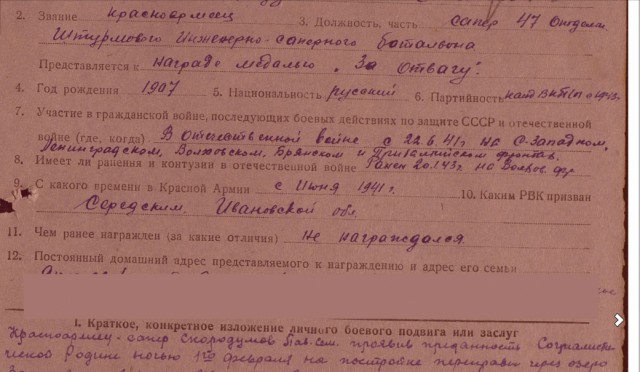 2. Звание красноармеец 3. Должность, часть сапер 47 Отдельн.
Штурмового Инженерно-саперного батальона
Представляется к награде медалью „За Отвагу".
4. Год рождения 1907 5. Национальность русский 6. Партийность канд ВКП(б) с 1943г.
7. Участие в гражданской войне, последующих боевых действиях по защите СССР и отечественной
войне (где, когда) В Отечественной войне с 22.6.41г. на С-Западном,
Ленинградском, Волховском, Брянском и Прибалтийском фронтах.
8. Имеет ли ранения и контузии в отечественной войне Ранен 20.1.43г. на Волхов. фр.
9. С какого времени в Красной Армии с Июня 1941г. 10. Каким РВК призван
Середским, Ивановской обл.
11. Чем ранее награжден (за какие отличия) Не награждался.
12. Постоянный домашний адрес представляемого к награждению и адрес его семьи
I. Краткое, конкретное изложение личного боевого подвига или заслуг
Красноармеец-сапер Скородумов Пав. Сем. проявив преданность Социалисти
ческой Родине ночью 1го февраля на постройке переправы через озеро